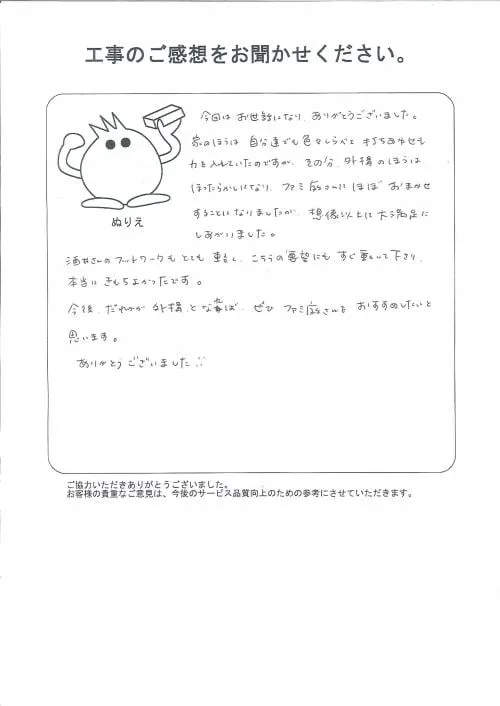 工事のご感想をお聞かせください。
今回はお世話になり、ありがとうございました。
家のほうは自分達でも色々しらべて打ち合わせも
力を入れていたのですが、その分、外構のほうは
ほったらかしになり、ファミ庭さんにほぼおまかせ
することになりましたが、想像以上に大満足に
しあがりました。
ぬりえ
酒井さんのフットワークもとても軽く、こちらの要望にもすぐ動いて下さり、
本当にきもちよかったです。
今後、だれかが外構、となれば、ぜひファミ庭さんをおすすめしたいと
思います。
ありがとうございました
ご協力いただきありがとうございました。
お客様の貴重なご意見は、今後のサービス品質向上のための参考にさせていただきます。